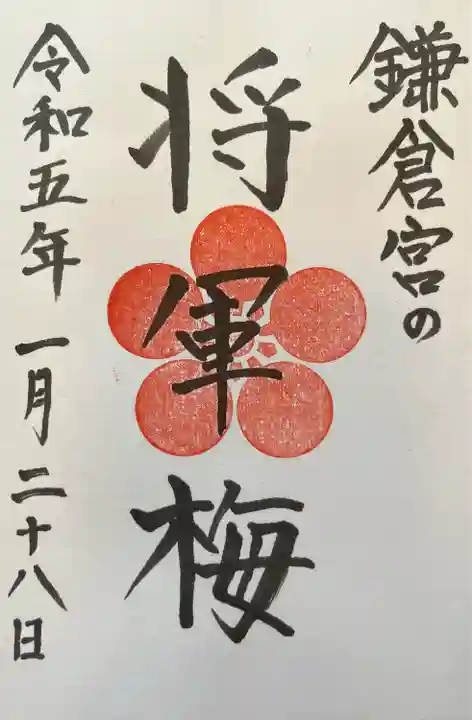 鎌倉宮の
将軍梅
令和五年 一月二十八日